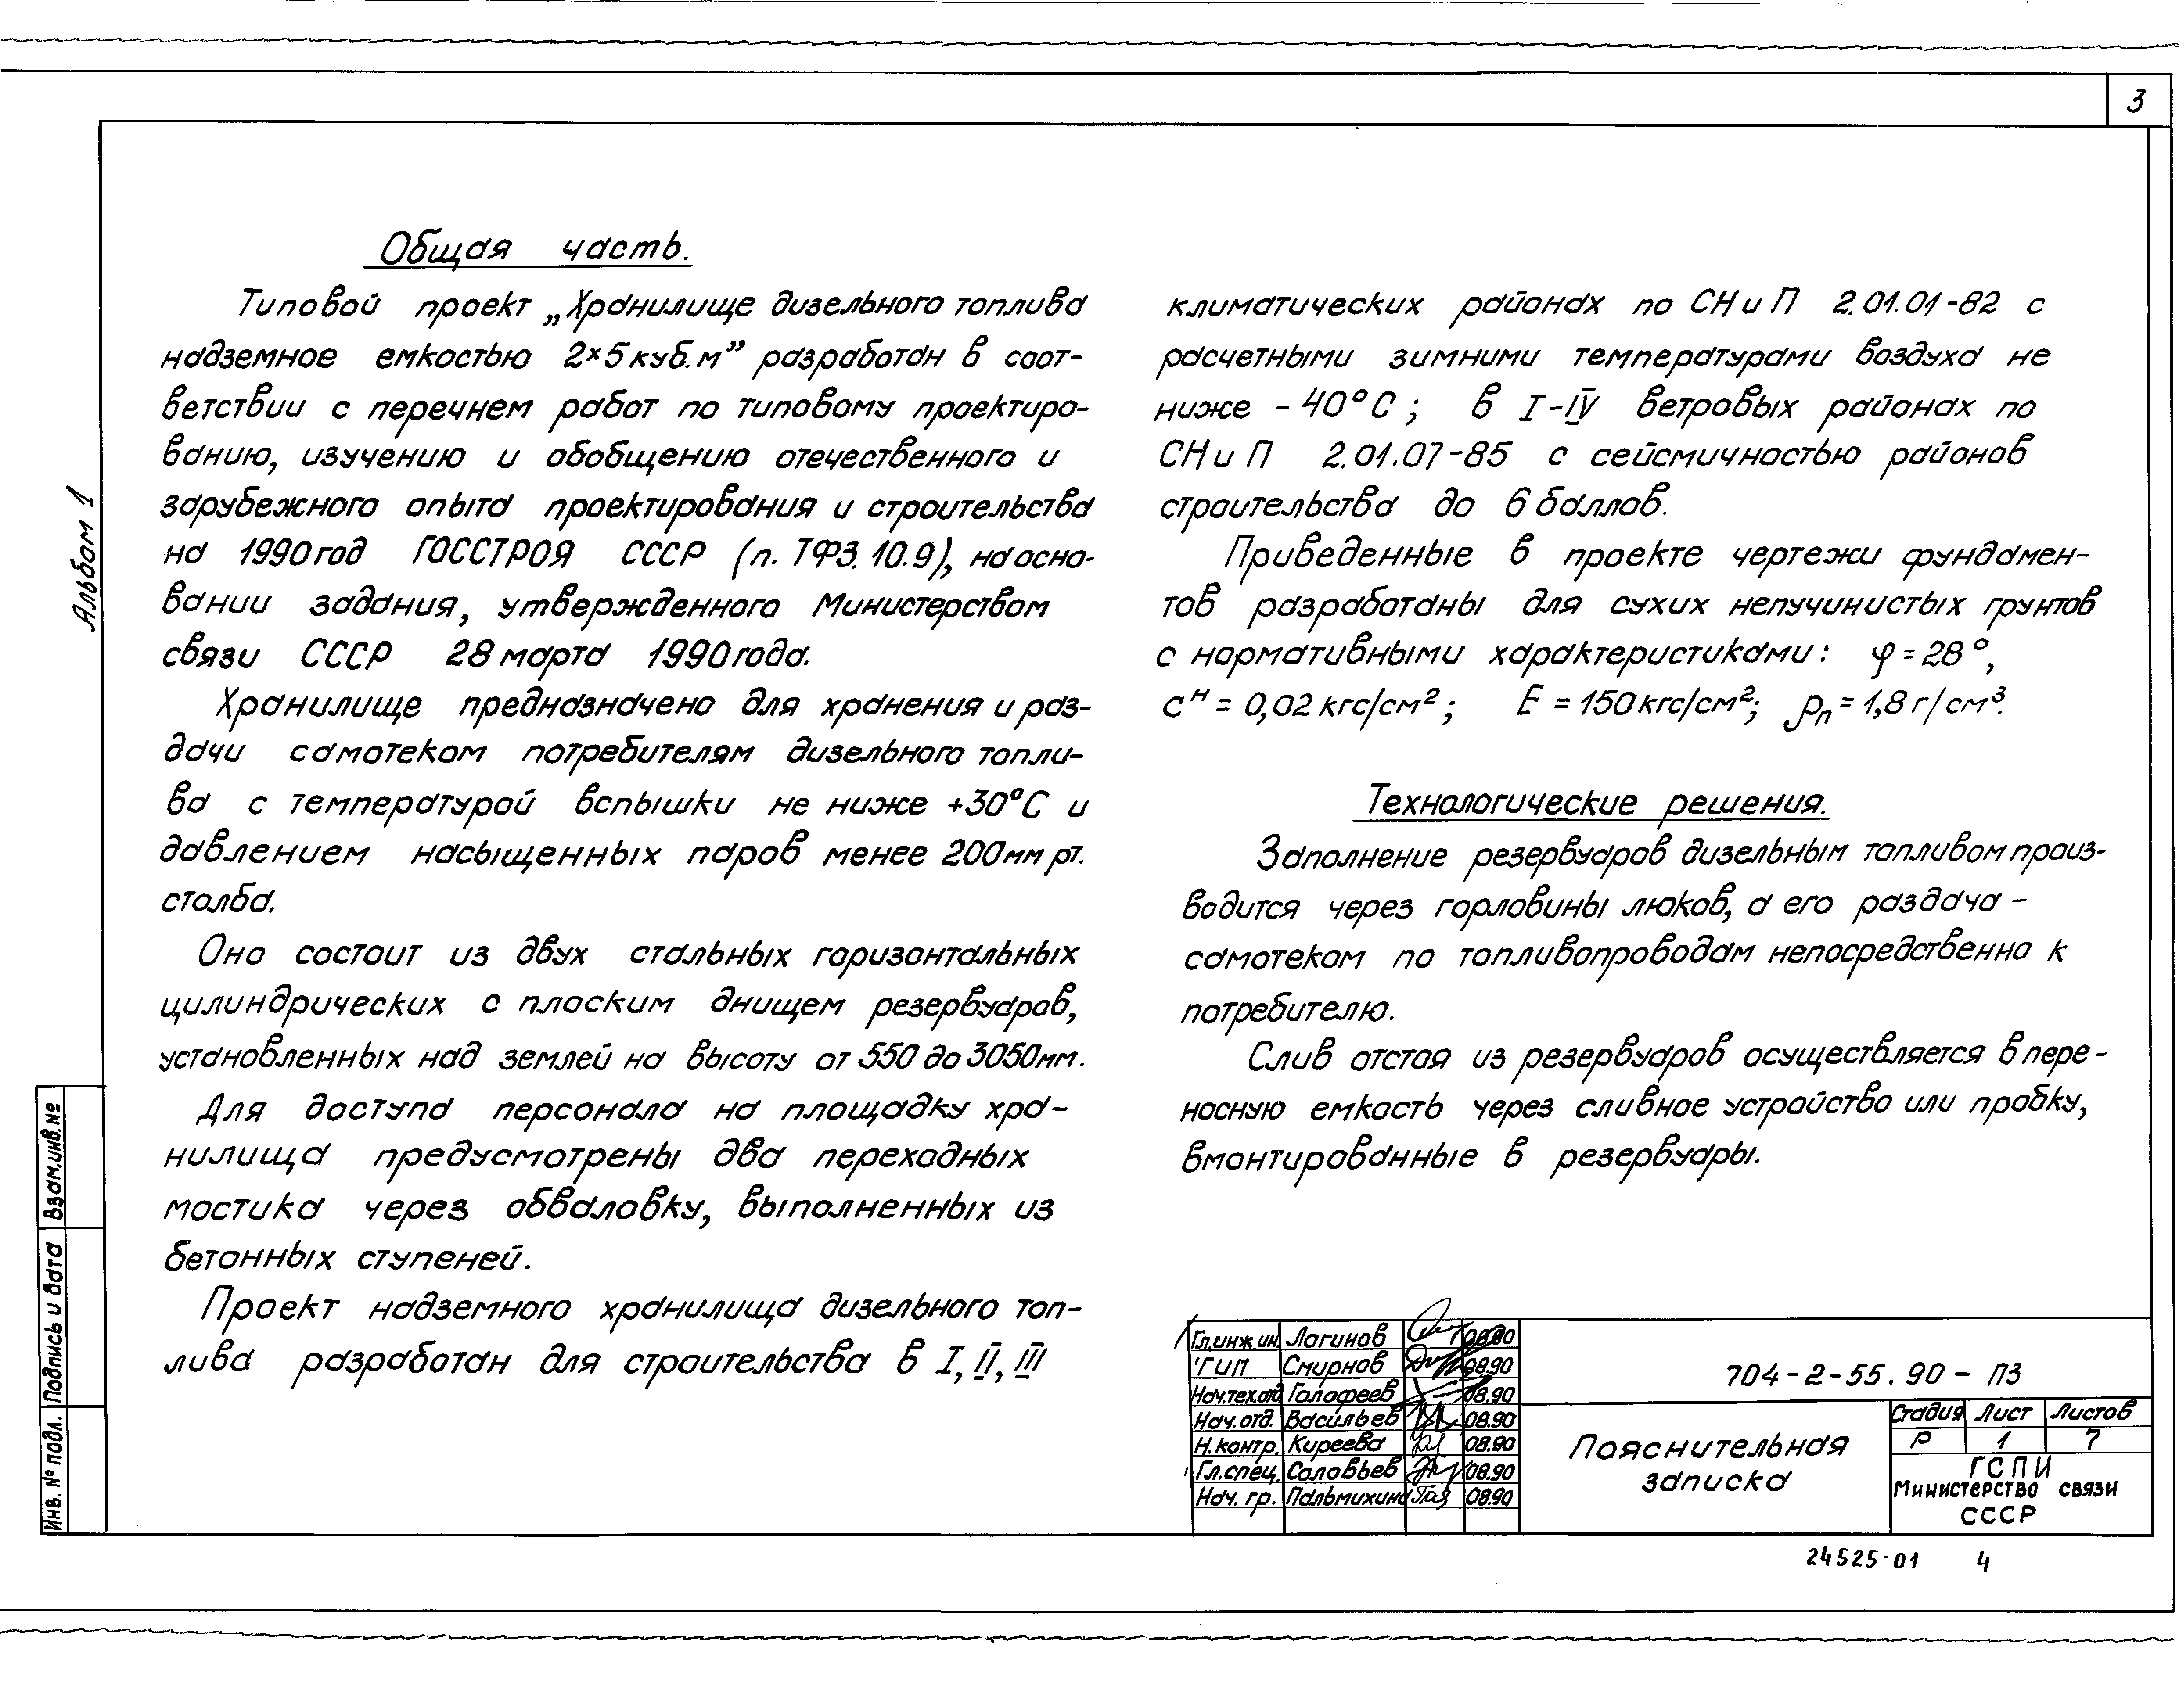 3
Альбом 1
Общая часть.
Типовой проект „Хранилище дизельного топлива
надземное емкостью 2×5 куб.м" разработан в соот-
ветствии с перечнем работ по типовому проектиро-
ванию, изучению и обобщению отечественного и
зарубежного опыта проектирования и строительства
на 1990 год ГОССТРОЯ СССР (п. ТФ3.10.9), на осно-
вании задания, утвержденного Министерством
связи СССР 28 марта 1990 года.
Хранилище предназначено для хранения и раз-
дачи самотеком потребителям дизельного топли-
ва с температурой вспышки не ниже +30°С и
давлением насыщенных паров менее 200 мм рт.
столба.
Оно состоит из двух стальных горизонтальных
цилиндрических с плоским днищем резервуаров,
установленных над землей на высоту от 550 до 3050мм.
Для доступа персонала на площадку хра-
нилища предусмотрены два переходных
мостика через обваловку, выполненных из
бетонных ступеней.
Проект надземного хранилища дизельного топ-
лива разработан для строительства в I, II, III
климатических районах по СНиП 2.01.01-82 с
расчетными зимними температурами воздуха не
ниже -40°С; в I-IV ветровых районах по
СНиП 2.01.07-85 с сейсмичностью районов
строительства до 6 баллов.
Приведенные в проекте чертежи фундамен-
тов разработаны для сухих непучинистых грунтов
с нормативными характеристиками: φ = 28°,
сᴴ = 0,02 кгс/см²; Е = 150 кгс/см²; ρп = 1,8 г/см³.
Технологические решения.
Заполнение резервуаров дизельным топливом произ-
водится через горловины люков, а его раздача -
самотеком по топливопроводам непосредственно к
потребителю.
Слив отстоя из резервуаров осуществляется в пере-
носную емкость через сливное устройство или пробку,
вмонтированные в резервуары.
Взам.инв.№
Подпись и дата
Инв. № подл.
Гл.инж.ин. Логинов 08.90
ГИП Смирнов 08.90
Нач.тех.отд Голофеев 08.90
Нач.отд. Васильев 08.90
Н.контр. Киреева 08.90
Гл.спец. Соловьев 08.90
Нач. гр. Пальмихина 08.90
704-2-55.90 - ПЗ
Пояснительная
записка
Стадия Лист Листов
Р 1 7
ГСПИ
Министерство связи
СССР
24525-01 4